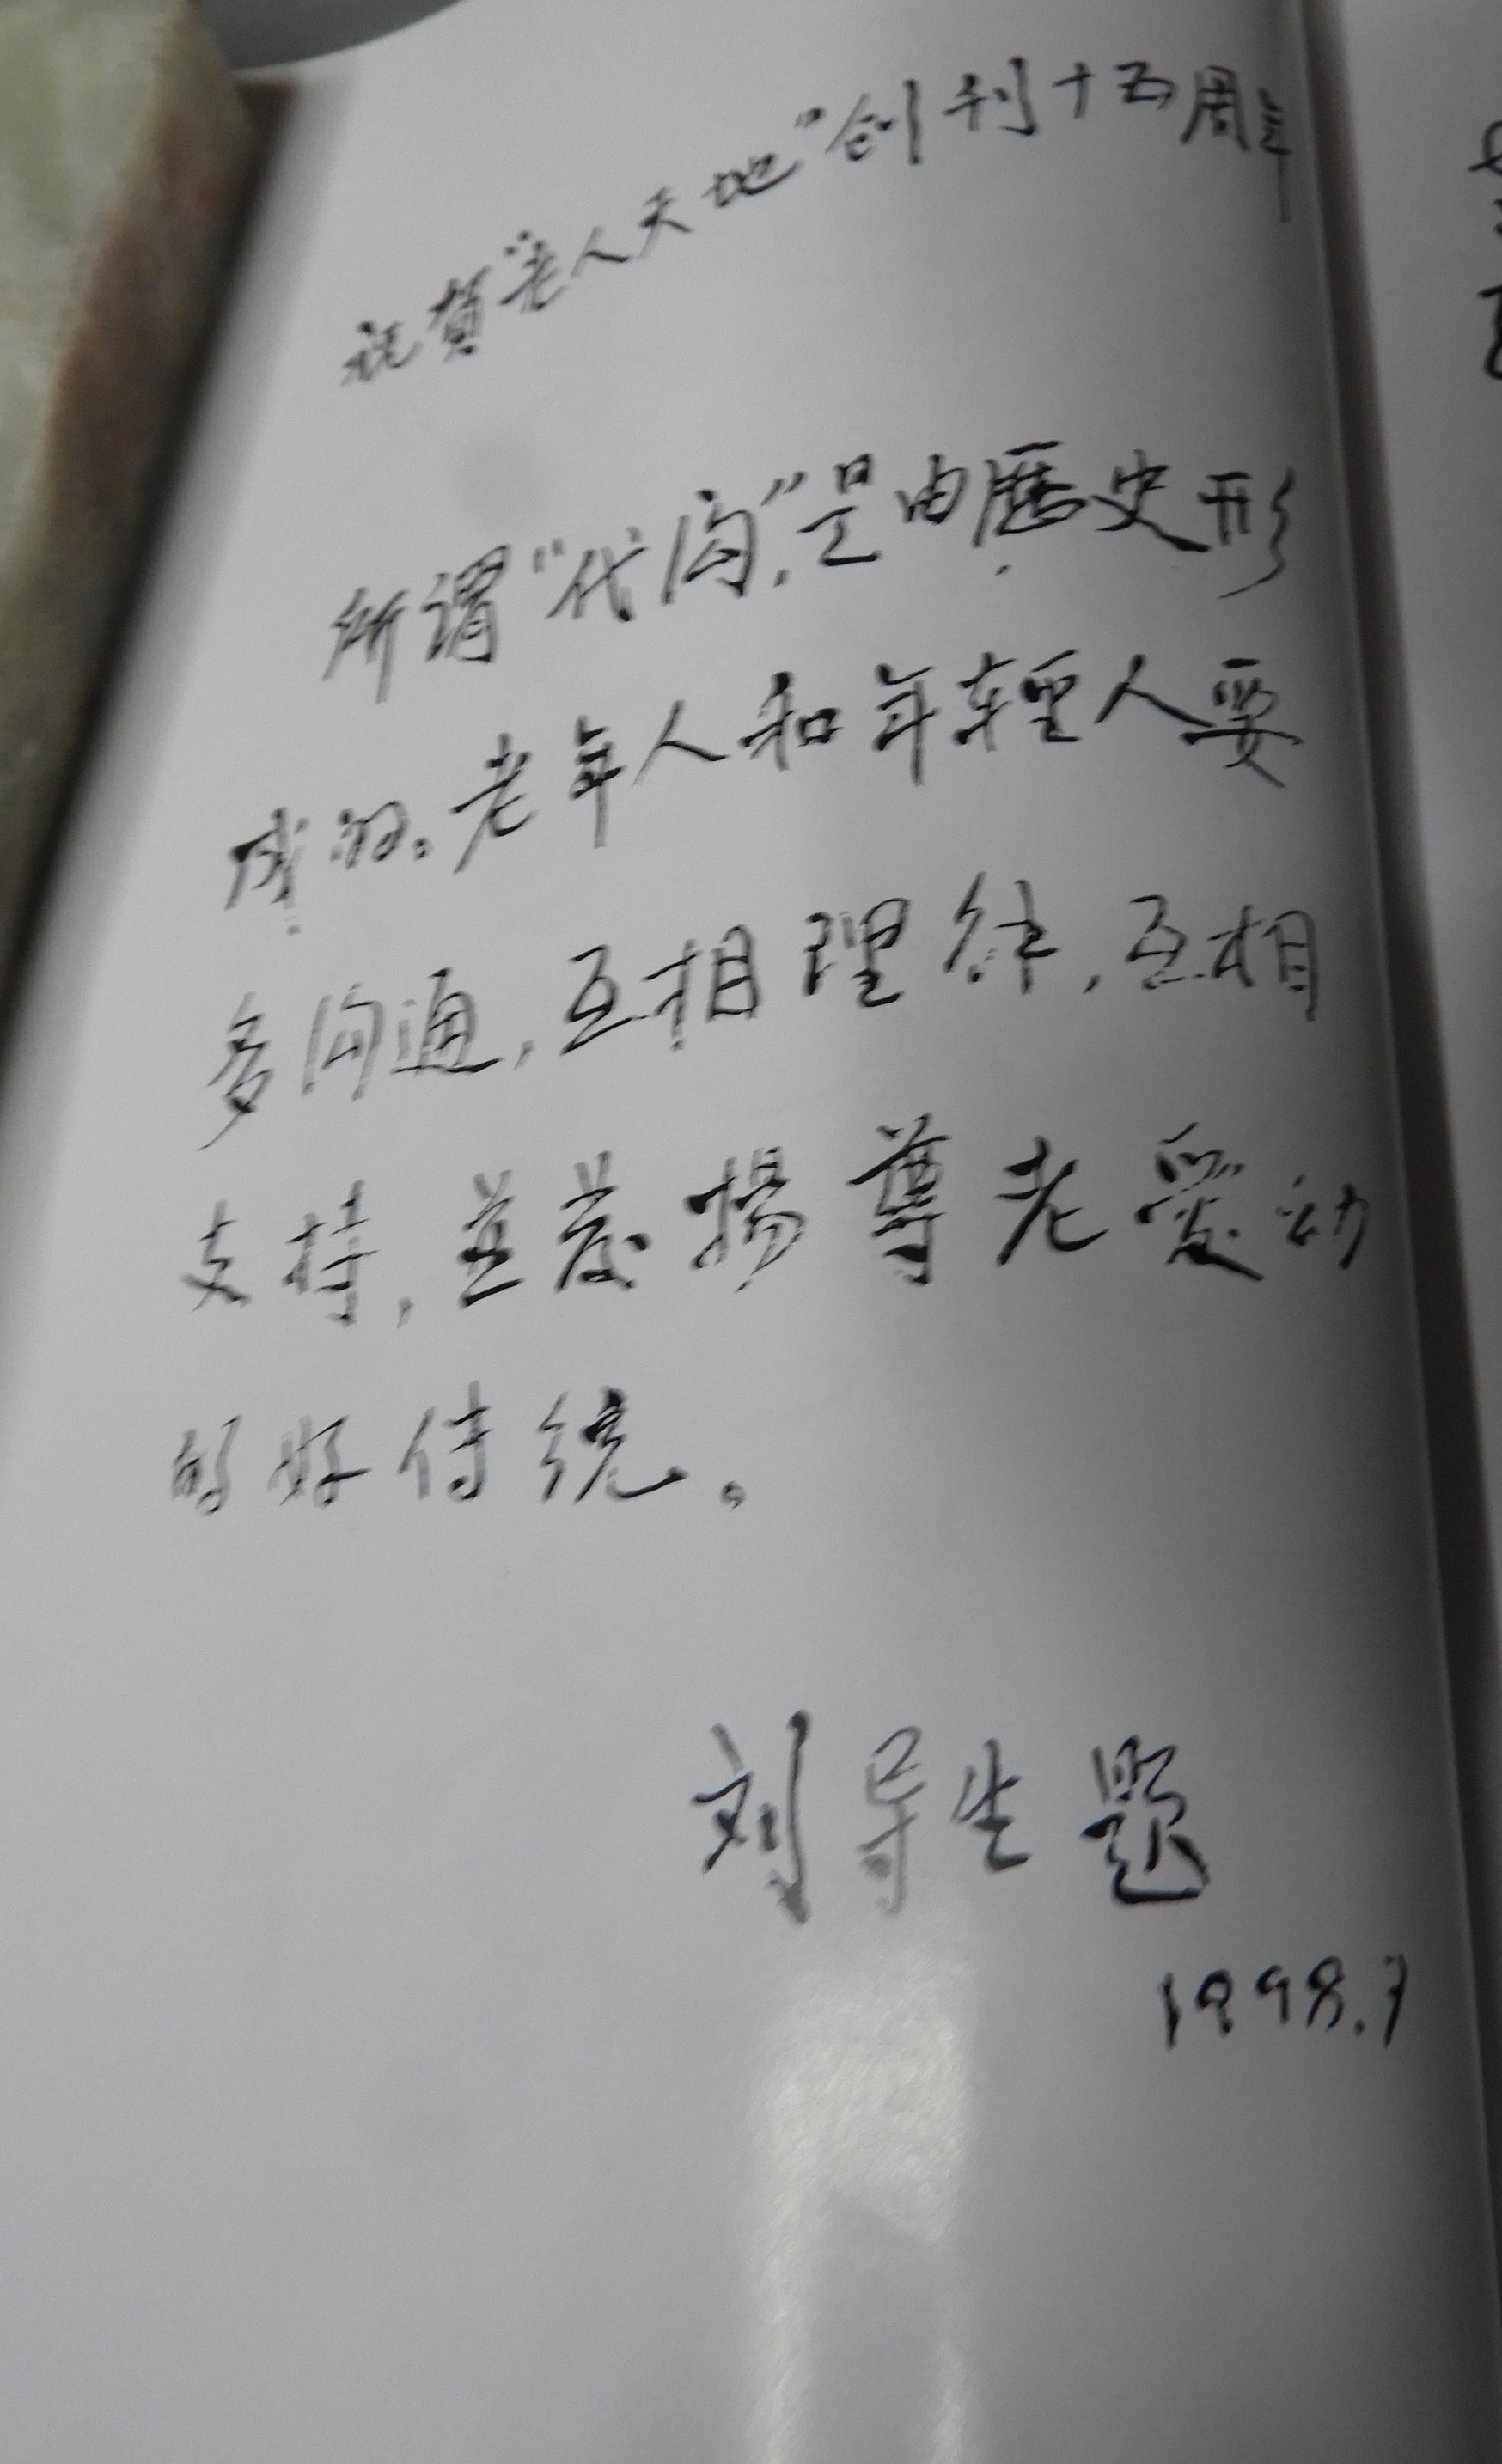 祝賀“老人天地”创刊十五周年
所谓“代沟”是由歷史形
成的。老年人和年輕人要
多沟通,互相理解,互相
支持,並發揚尊老愛幼
的好传统。
刘导生题
1998.7